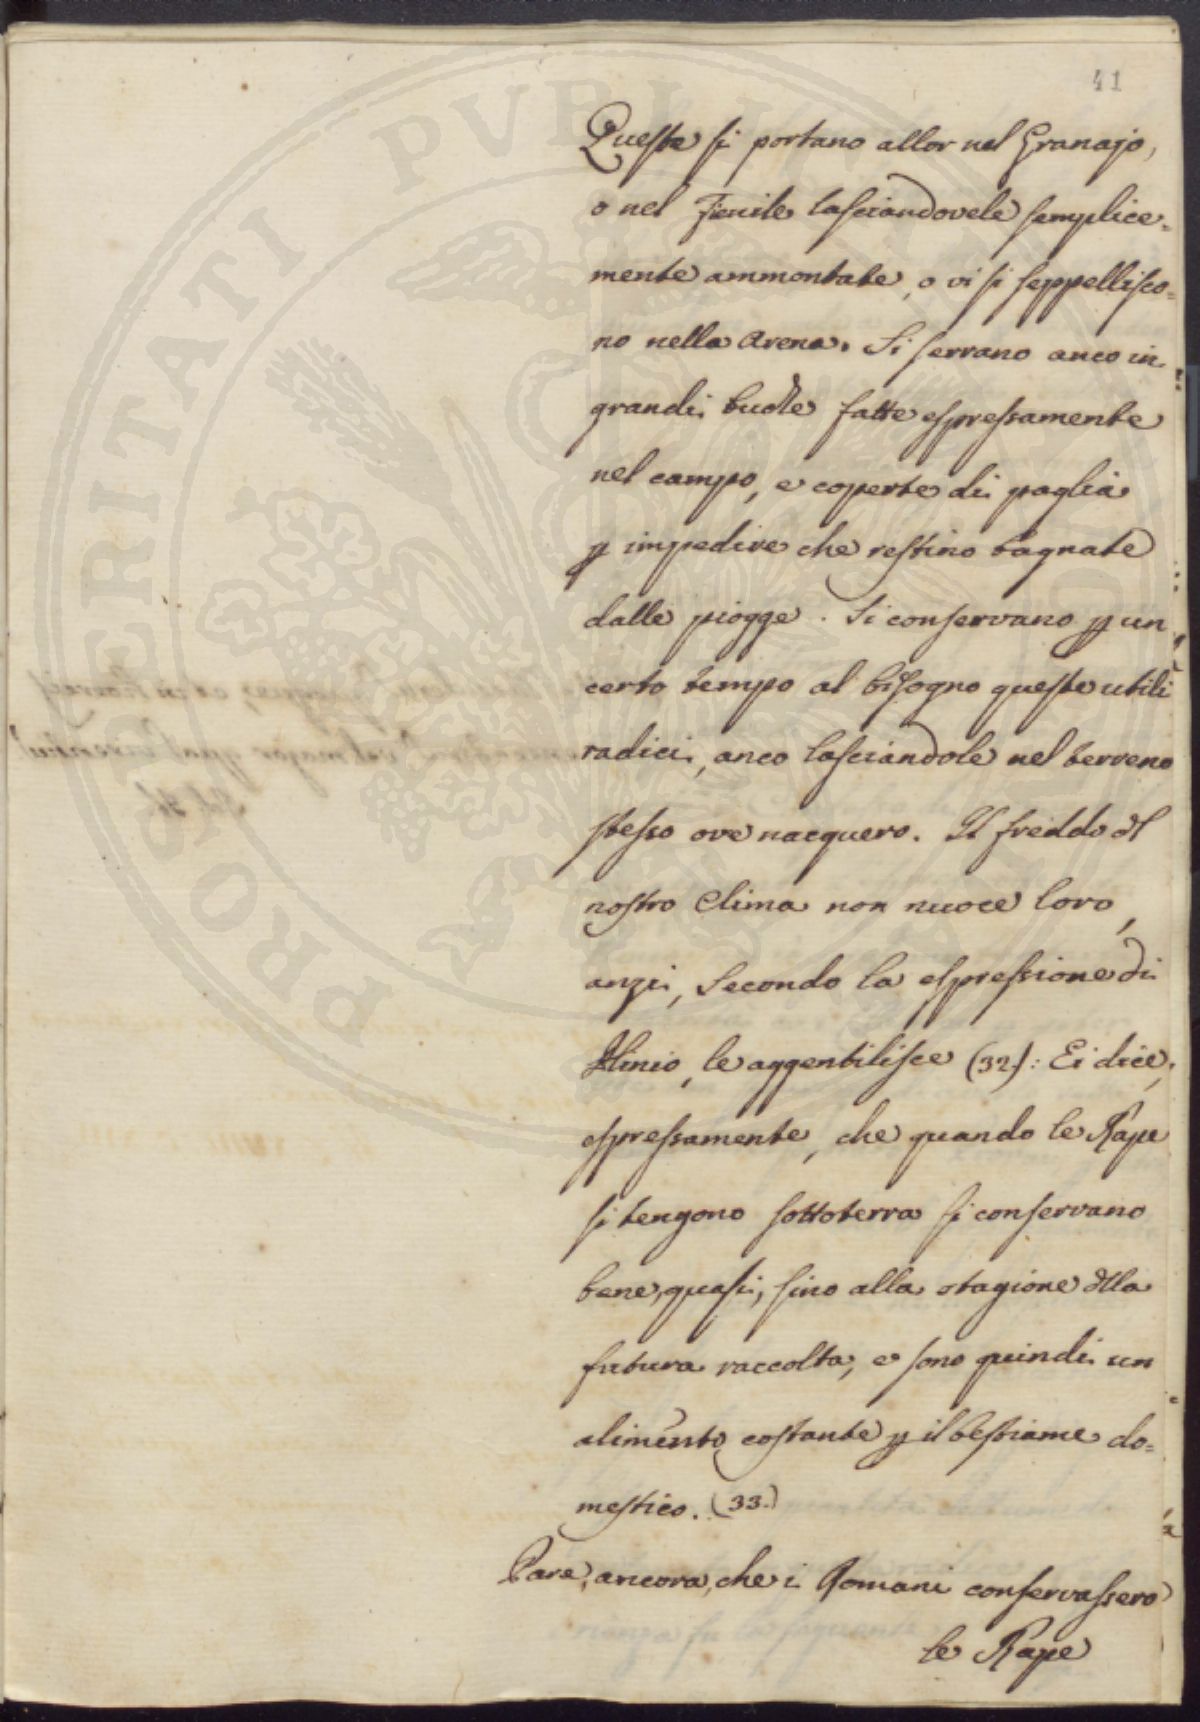 41
Queste si portano allor nel Granajo,
o nel Fienile lasciandovele semplice=
mente ammontate, o vi si seppellisco=
no nella Arena. Si serrano anco in
grandi buche fatte espressamente
nel campo, e coperte di paglia
p impedire che restino bagnate
dalle piogge. Si conservano p un
certo tempo al bisogno queste utili
radici, anco lasciandole nel terreno
stesso ove nacquero. Il freddo dl
nostro Clima non nuoce loro,
anzi, secondo la espressione di
Plinio, le aggentilisce (32): Ei dice,
espressamente, che quando le Rape
si tengono sottoterra si conservano
bene, quasi, sino alla stagione dlla
futura raccolta, e sono quindi un
alimento costante p il bestiame do=
mestico. (33.)
Pare, ancora, che i Romani conservassero
le Rape
PROSPERITATI PUBLI